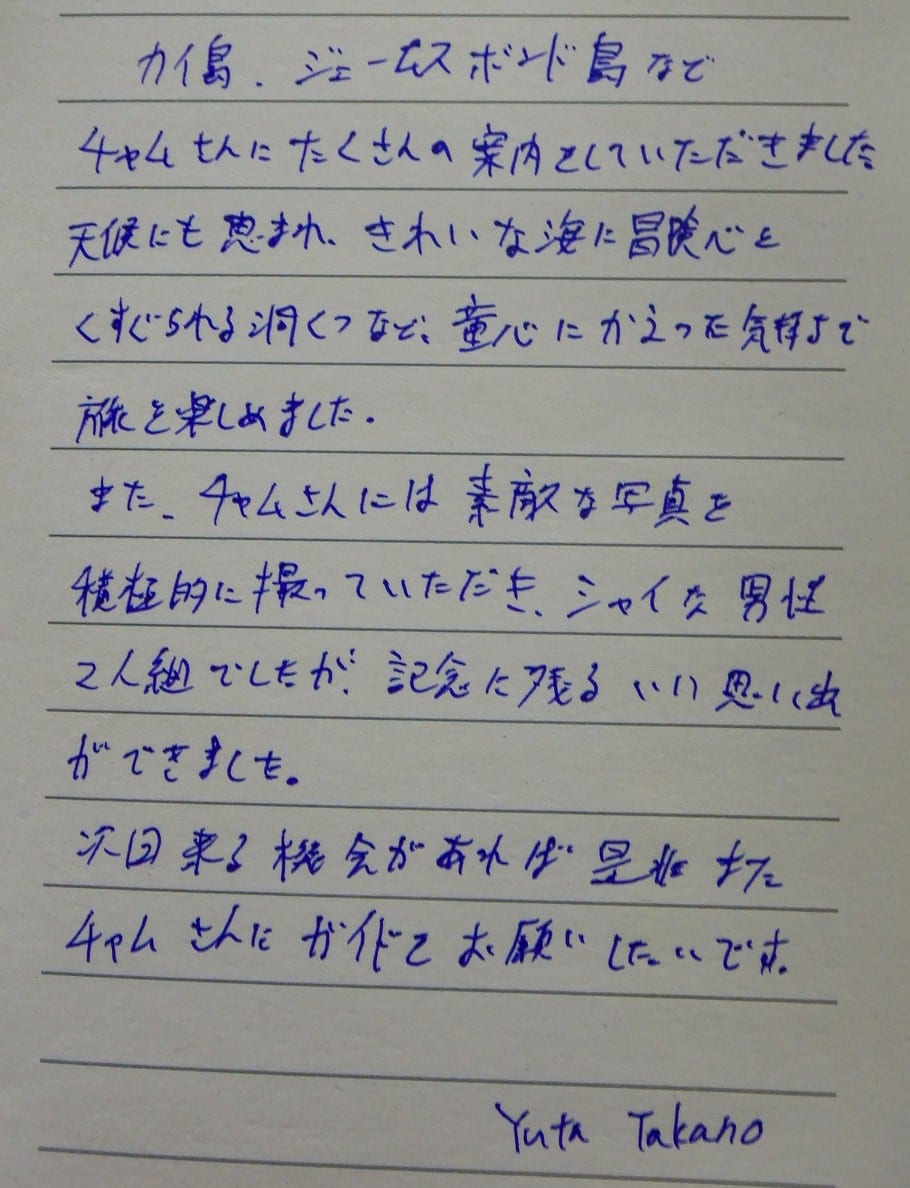 カイ島、ジェームスボンド島など
チャムさんにたくさんの案内をしていただきました
天候にも恵まれ、きれいな海に冒険心を
くすぐられる洞くつなど、童心にかえった気持ちで
旅を楽しめました。
また、チャムさんには素敵な写真を
積極的に撮っていただき、シャイな男性
2人組でしたが、記念に残るいい思い出
ができました。
次回来る機会があれば是非また
チャムさんにガイドをお願いしたいです。
Yuta Takano